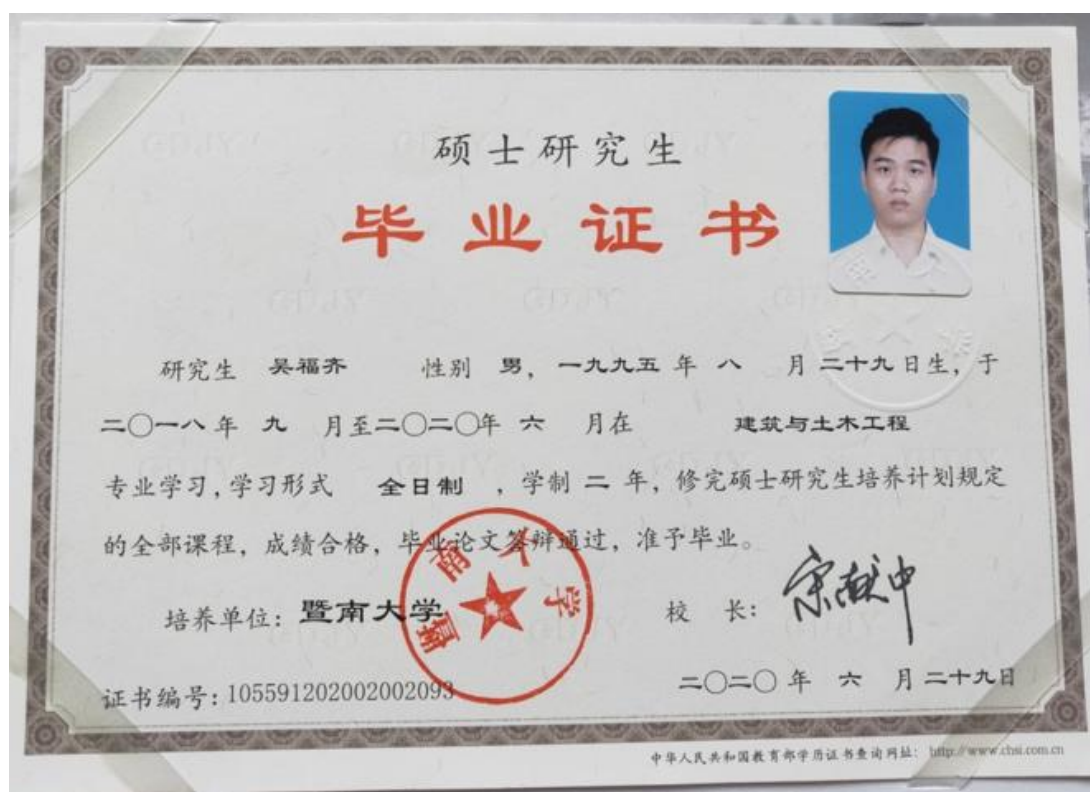 硕士研究生
毕业证书
研究生 吴福齐 性别 男，一九九五 年 八 月 二十九 日生，于
二〇一八 年 九 月至二〇二〇年 六 月在 建筑与土木工程
专业学习，学习形式 全日制 ，学制 二 年，修完硕士研究生培养计划规定
的全部课程，成绩合格，毕业论文答辩通过，准予毕业。
培养单位：暨南大学 校 长：宋献中
暨南大学
证书编号：105591202002002093 二〇二〇 年 六 月 二十九日
中华人民共和国教育部学历证书查询网址：http://www.chsi.com.cn